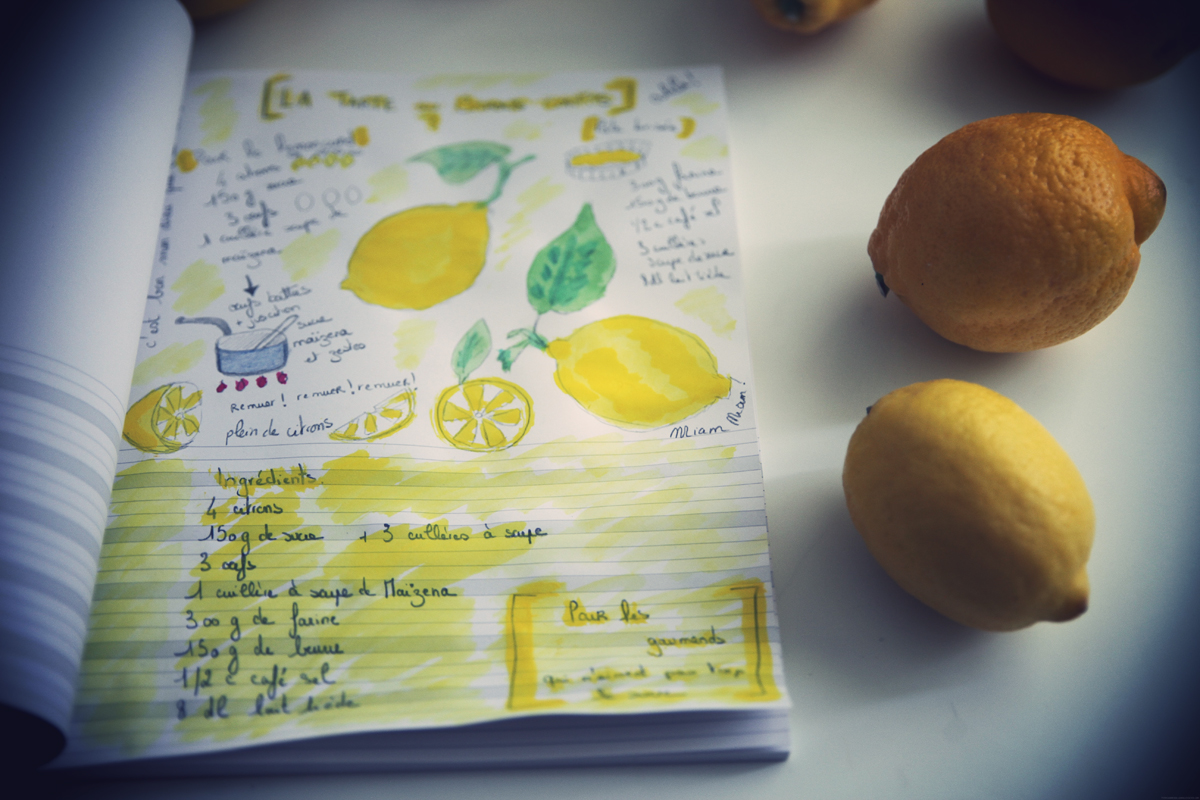 LA TARTE
4 citrons
150g sucre
3 œufs
1 cuillère soupe de
maïzena
œufs battus
sucre
maïzena
et zestes
Remuer! remuer! remuer!
plein de citrons
c'est bon
300g farine
150g de beurre
1/2 c café sel
3 cuillères
soupe de sucre
lait tiède
Miam Miam!
Ingrédients
4 citrons
150g de sucre + 3 cuillères à soupe
3 œufs
1 cuillère à soupe de Maïzena
300 g de farine
150 g de beurre
1/2 c café sel
8 dl lait tiède
Pour les
gourmands
qui n'aiment pas trop
le sucre